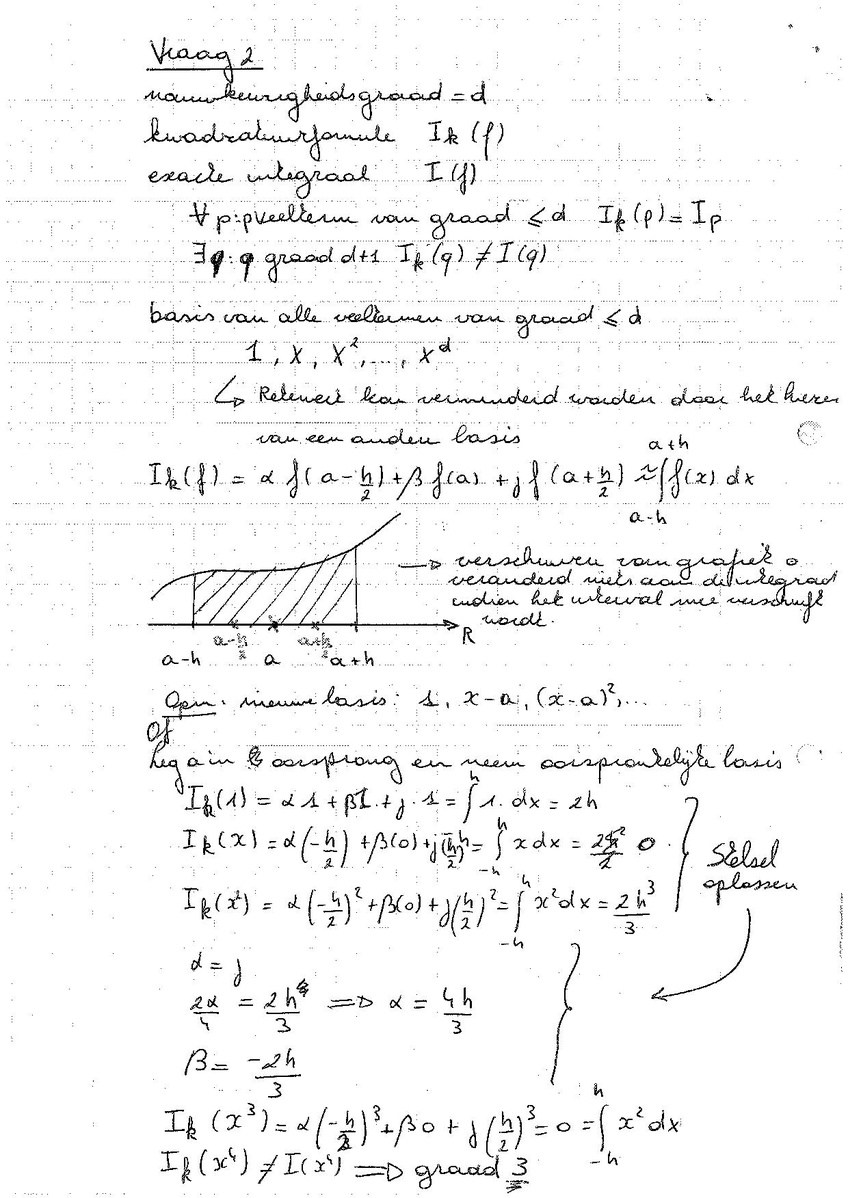 Vraag 2
nauwkeurigheidsgraad = d
kwadratuurformule I_k (f)
exacte integraal I (f)
∀ p: p veelterm van graad ≤ d I_k (p) = I_p
∃ q: q graad d+1 I_k (q) ≠ I (q)
basis van alle veeltermen van graad ≤ d
1, x, x², ..., x^d
↳ Rekenwerk kan verminderd worden door het kiezen
van een andere basis
I_k (f) = α f(a - h/2) + β f(a) + γ f(a + h/2) ≈ ∫_{a-h}^{a+h} f(x) dx
→ verschuiven van grafiek
veranderd niets aan de integraal
indien het interval mee verschuift
wordt.
a-h a-h/2 a a+h/2 a+h R
Opm. nieuwe basis: 1, x-a, (x-a)², ...
Of
leg a in oorsprong en neem oorspronkelijke basis
I_k (1) = α 1 + β 1 + γ · 1 = ∫^h 1 · dx = 2h
I_k (x) = α (-h/2) + β (0) + γ (h/2) = ∫_{-h}^{h} x dx = 0
I_k (x²) = α (-h/2)² + β (0) + γ (h/2)² = ∫_{-h}^{h} x² dx = 2h³/3
Stelsel
oplossen
α = γ
2α/4 = 2h/3 ⇒ α = 4h/3
β = -2h/3
I_k (x³) = α (-h/2)³ + β 0 + γ (h/2)³ = 0 = ∫_{-h}^{h} x² dx
I_k (x⁴) ≠ I (x⁴) ⇒ graad 3